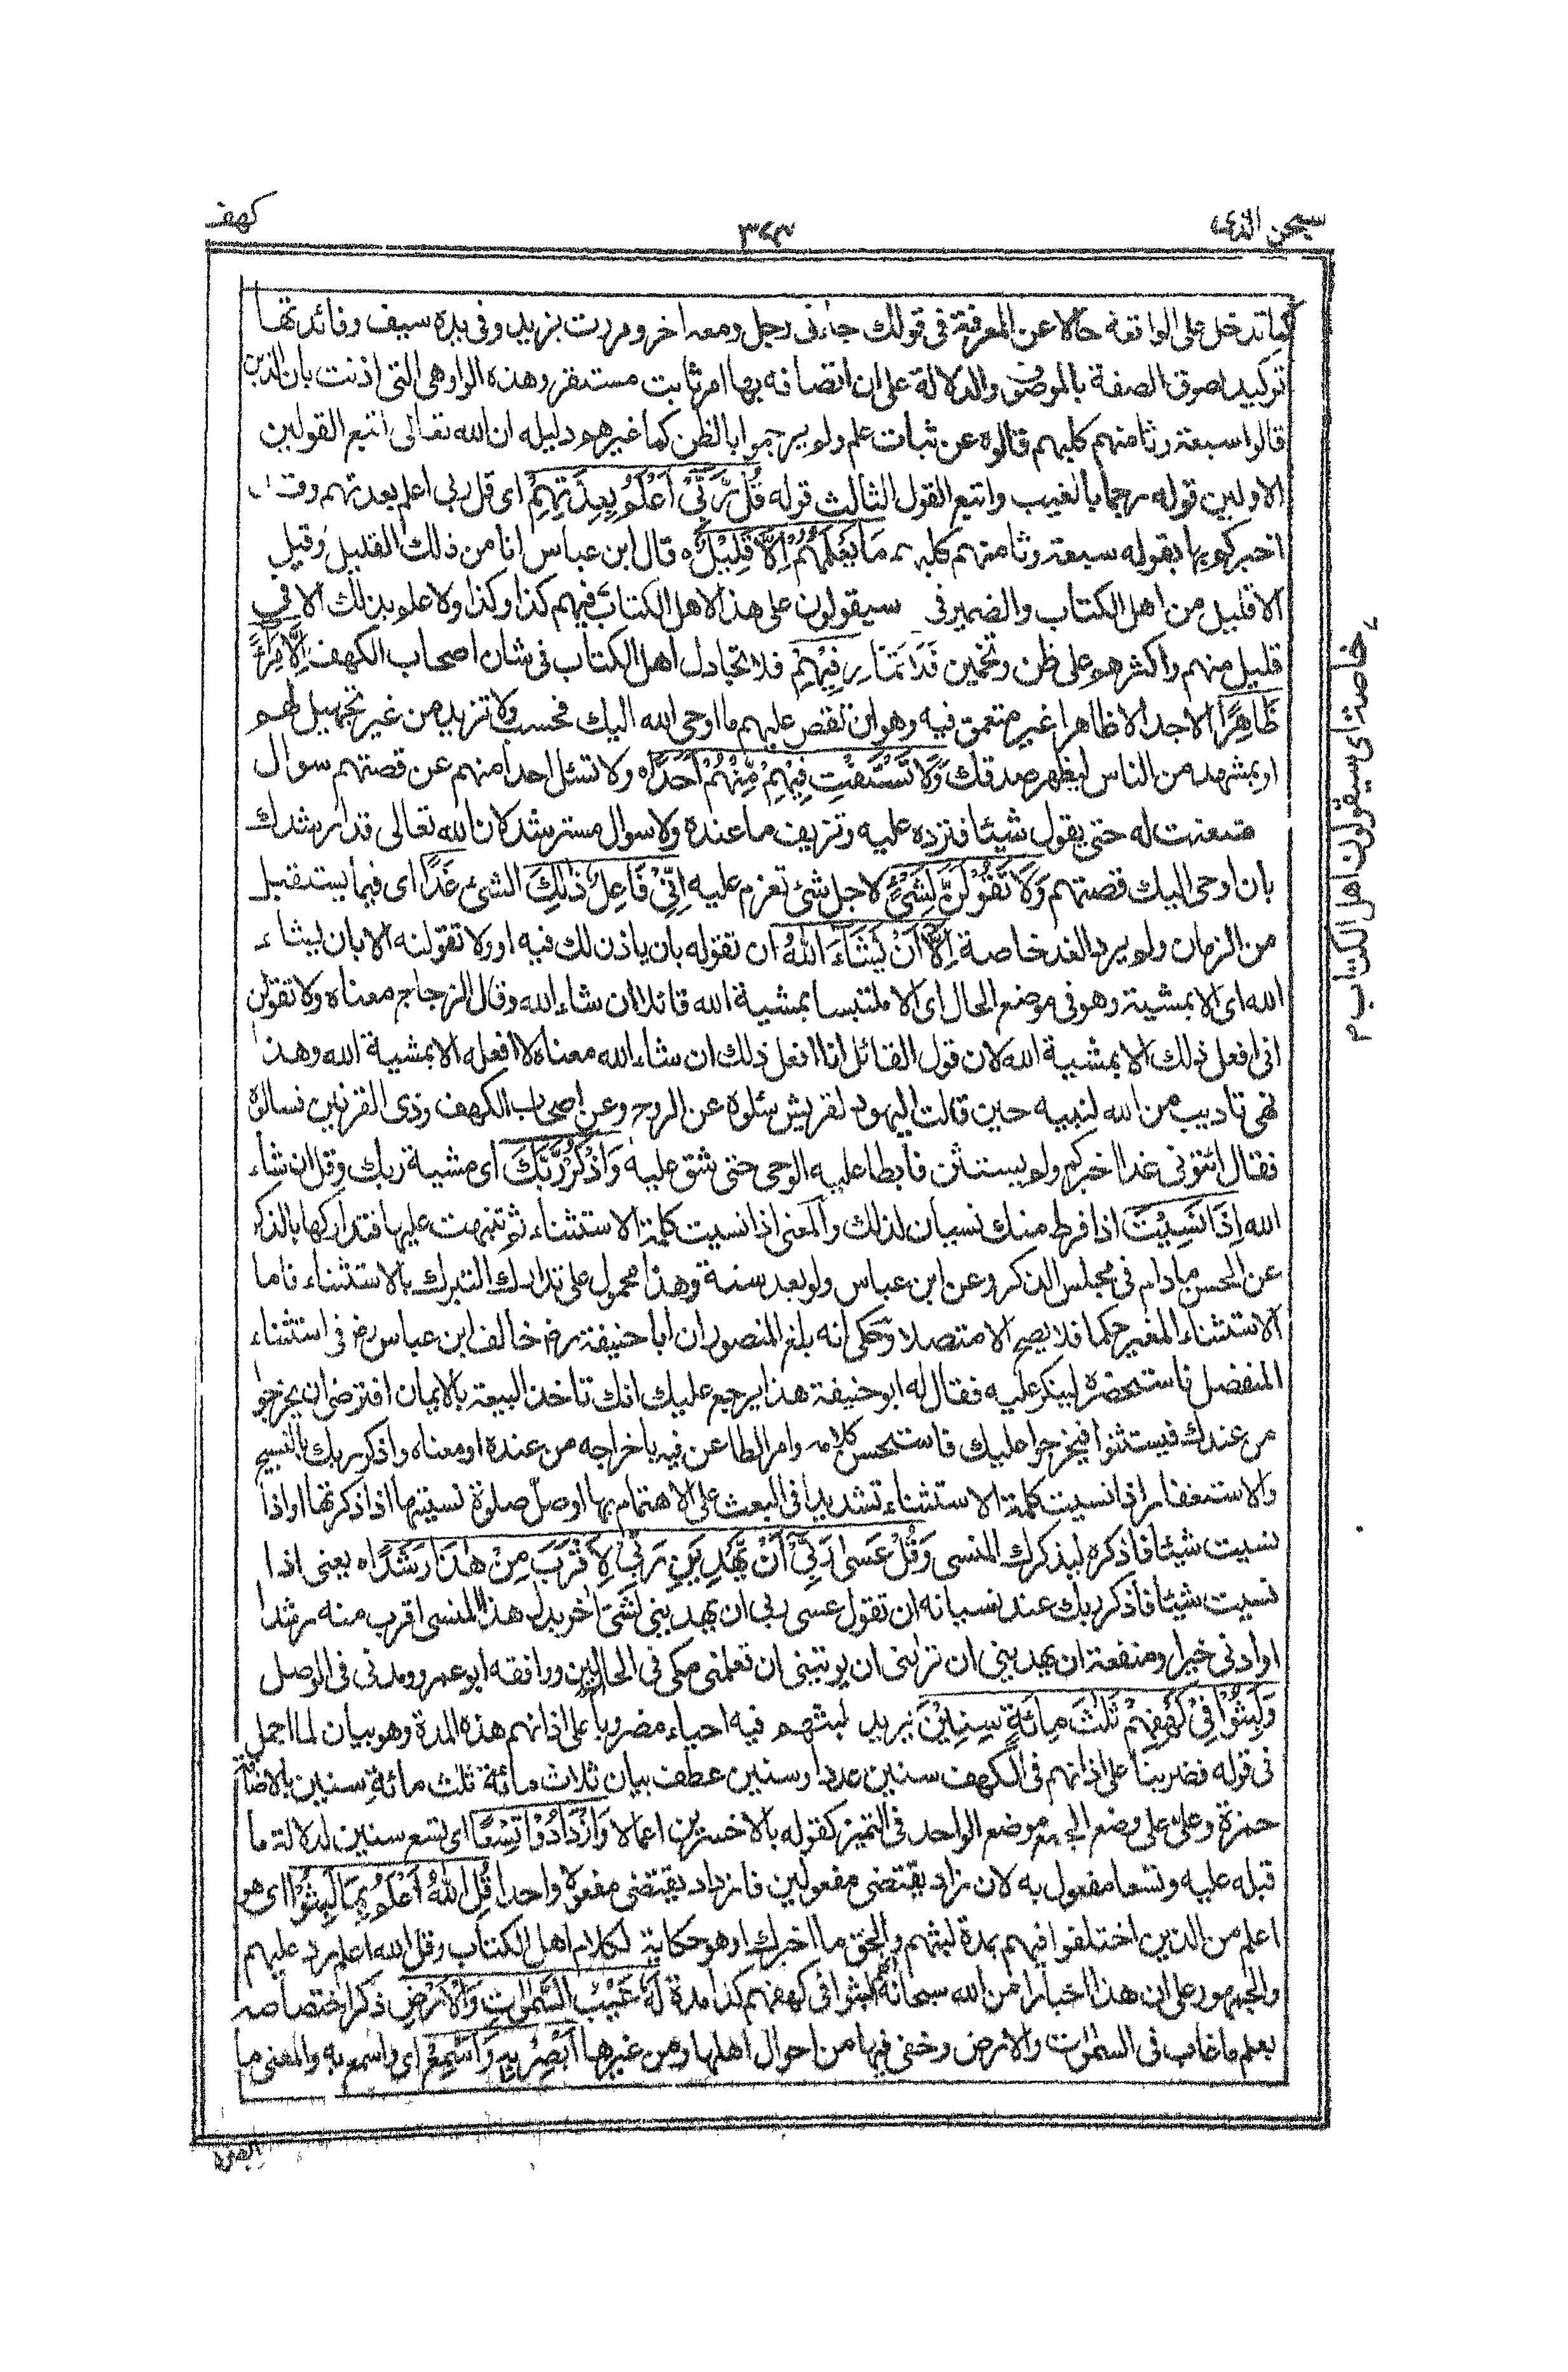 سبحن الذى ٣٢٣ كهف
كما تدخل على الواقعة حالا عن المعرفة فى قولك جاءنى رجل ومعه اخر ومررت بزيد وفى يده سيف وفائدتها
توكيد لصوق الصفة بالموصوف والدلالة على ان اتصافه بها امر ثابت مستقر وهذه الواو هى التى اذنت بان الذين
قالوا سبعة وثامنهم كلبهم قالوه عن ثبات علم ولم يرجموا بالظن كما غيرهم ودليله ان الله تعالى اتبع القولين
الاولين قوله رجما بالغيب واتبع القول الثالث قوله قُلْ رَّبِّىْ اَعْلَمُ بِعِدَّتِهِمْ اى قل ربى اعلم بعدتهم وقد
اخبركم بها بقوله سبعة وثامنهم كلبهم مَا يَعْلَمُهُمْ اِلَّا قَلِيْلٌ ه قال ابن عباس انا من ذلك القليل وقيل
الا قليل من اهل الكتاب والضمير فى سيقولون على هذا لاهل الكتاب فيهم كذا وكذا ولا علم بذلك الا فى
قليل منهم واكثرهم على ظن وتخمين فَلَا تُمَارِ فِيْهِمْ فلا تجادل اهل الكتاب فى شان اصحاب الكهف اِلَّا مِرَآءً
ظَاهِرًا الا جدالا ظاهرا غير متعمق فيه وهو ان تقص عليهم ما اوحى الله اليك فحسب ولا تزيد من غير تجهيل لهم
او بمشهد من الناس ليظهر صدقك وَّلَا تَسْتَفْتِ فِيْهِمْ مِّنْهُمْ اَحَدًا ه ولا تسئل احدا منهم عن قصتهم سوال
متعنت له حتى يقول شيئا فتزده عليه وتزيف ما عنده ولا سوال مسترشد لان الله تعالى قد ارشدك
بان اوحى اليك قصتهم وَلَا تَقُوْلَنَّ لِشَىْءٍ لاجل شئ تعزم عليه اِنِّىْ فَاعِلٌ ذٰلِكَ الشئ غَدًا اى فيما يستقبل
من الزمان ولم يرد الغد خاصة اِلَّا اَنْ يَّشَآءَ اللهُ ان تقوله بان ياذن لك فيه او ولا تقولنه الا بان يشاء
الله اى الا بمشيته وهو فى موضع الحال اى الا ملتبسا بمشية الله قائلا ان شاء الله وقال الزجاج معناه ولا تقولن
انى افعل ذلك الا بمشية الله لان قول القائل انا افعل ذلك ان شاء الله معناه لا افعله الا بمشية الله وهذا
نهى تاديب من الله لنبيه حين قالت اليهود لقريش سئلوه عن الروح وعن اصحاب الكهف وذى القرنين فسالوه
فقال ائتونى غدا اخبركم ولم يستثن فابطا عليه الوحى حتى شق عليه وَاذْكُرْ رَّبَّكَ اى مشية ربك وقل ان شاء
الله اِذَا نَسِيْتَ اذا فرط منك نسيان لذلك والمعنى اذا نسيت كلمة الاستثناء ثم تنبهت عليها فتداركها بالذكر
عن الحسن ما دام فى مجلس الذكر وعن ابن عباس ولو بعد سنة وهذا محمول على تدارك التبرك بالاستثناء فاما
الاستثناء المغير حكما فلا يصح الا متصلا وحكى انه بلغ المنصور ان ابا حنيفة رض خالف ابن عباس رض فى استثناء
المنفصل فاستحضره لينكر عليه فقال له ابو حنيفة هذا يرجع عليك انك تاخذ البيعة بالايمان افترضى ان يخرجوا
من عندك فيستثنوا فيخرجوا عليك فاستحسن كلامه وامر الطاعن فيه باخراجه من عنده او معناه واذكر ربك بالتسبيح
والاستغفار اذا نسيت كلمة الاستثناء تشديدا فى البعث على الاهتمام بها او صل صلوة نسيتها اذا ذكرتها او اذا
نسيت شيئا فاذكره ليذكرك المنسى وَقُلْ عَسٰى اَنْ يَّهْدِيَنِ رَبِّىْ لِاَقْرَبَ مِنْ هٰذَا رَشَدًا ه يعنى اذا
نسيت شيئا فاذكر ربك عند نسيانه ان تقول عسى ربى ان يهدينى لشئ اخر بدل هذا المنسى اقرب منه رشدا
او ادنى خيرا ومنفعة ان يهدينى ان ترانى ان يوتينى ان تعلمنى مكى فى الحالين ووافقه ابو عمرو ومدنى فى الوصل
وَلَبِثُوْا فِىْ كَهْفِهِمْ ثَلٰثَ مِائَةٍ سِنِيْنَ يريد لبثهم فيه احياء مضروبا على اذانهم هذه المدة وهو بيان لما اجمل
فى قوله فضربنا على اذانهم فى الكهف سنين عددا وسنين عطف بيان ثلاث مائة ثلث مائةِ سنين بالاضافة
حمزة وعلى على وضع الجمع موضع الواحد فى التميز كقوله بالاخسرين اعمالا وَازْدَادُوْا تِسْعًا اى تسع سنين لدلالة ما
قبله عليه وتسعا مفعول به لان زاد يقتضى مفعولين فازداد يقتضى مفعولا واحدا قُلِ اللهُ اَعْلَمُ بِمَا لَبِثُوْا اى هو
اعلم من الذين اختلفوا فيهم بمدة لبثهم والحق ما اخبرك او هو حكاية لكلام اهل الكتاب وقل الله اعلم رد عليهم
والجمهور على ان هذا اخبار من الله سبحانه لبثوا فى كهفهم كذا مدة لَهٗ غَيْبُ السَّمٰوٰتِ وَالْاَرْضِ ذكر اختصاصه
بعلم ما غاب فى السموات والارض وخفى فيها من احوال اهلها ومن غيرها اَبْصِرْ بِهٖ وَاَسْمِعْ اى واسمع به والمعنى ما
خاصة اى سيقولون اهل الكتاب م